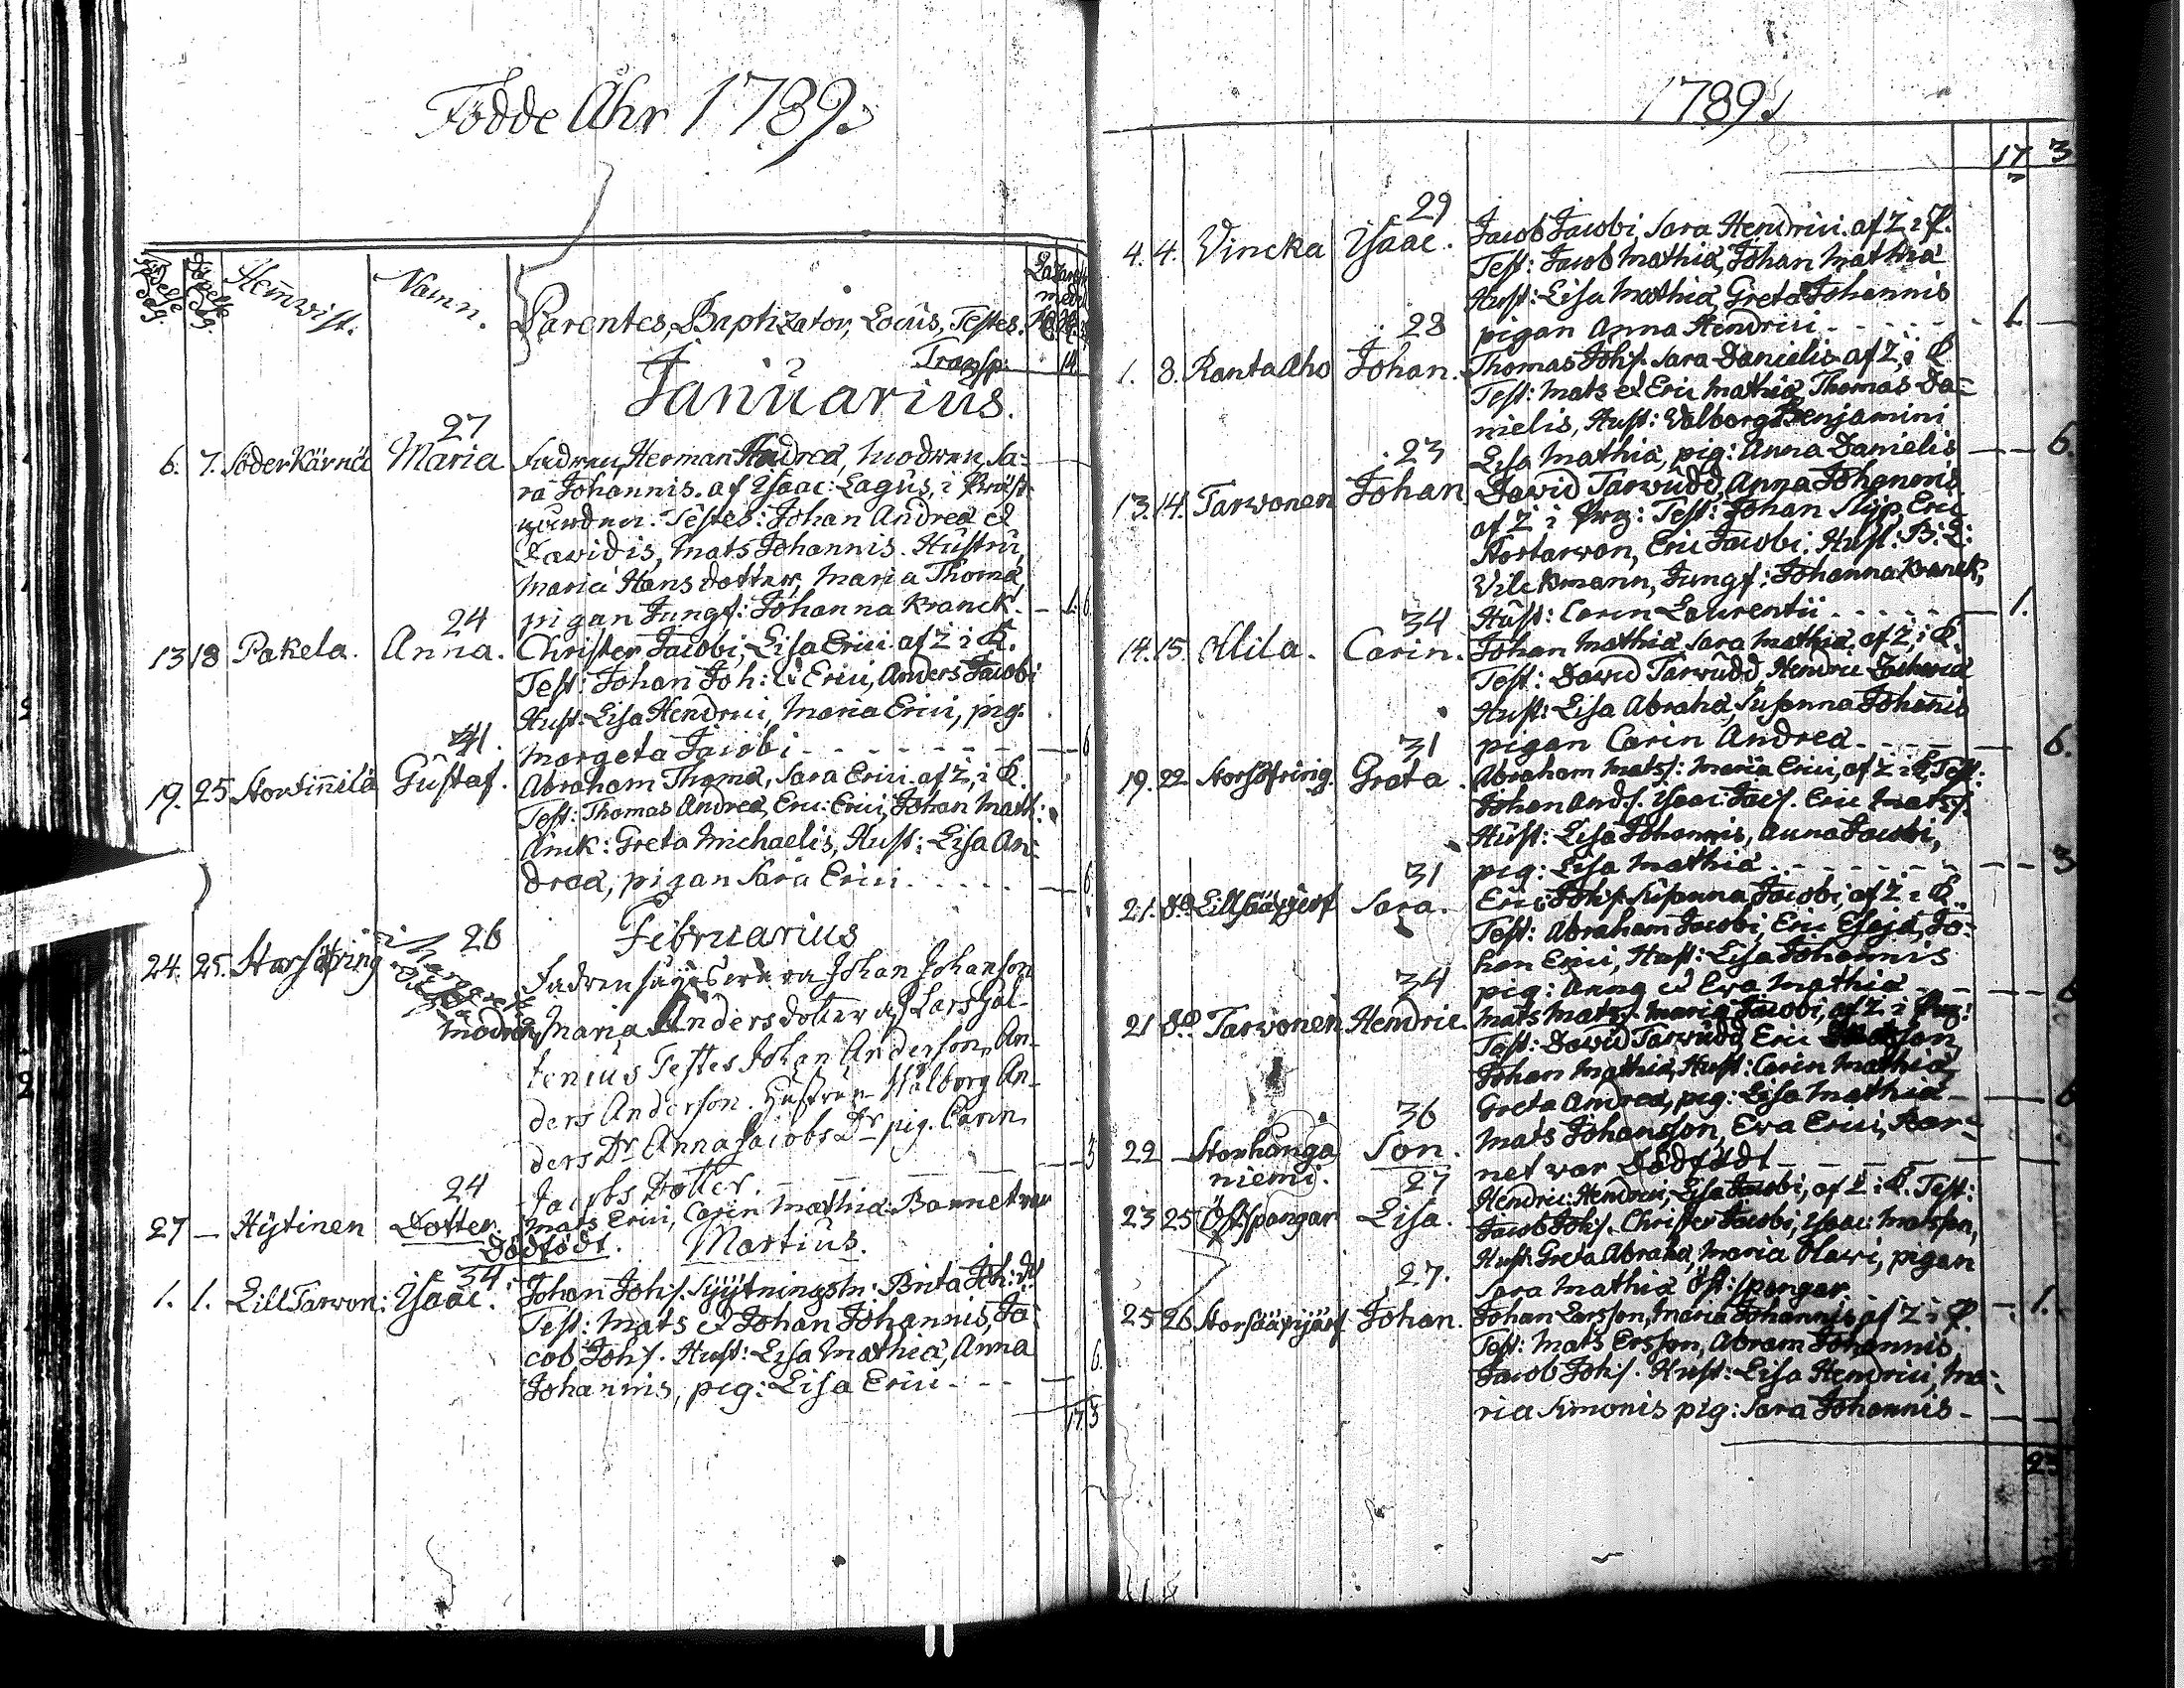 Födde Åhr 1789.
Födelse dag.
Döpelse dag.
Hemwist.
Namn.
Parentes, Baptizator, Locus, Testes.
Transp: 14
Januarius.
27
6. 7. Söderkärnä Maria Fadren, Herman Andreæ, modren Sa-
ra Johannis. af Isaac: Lagus, i Präst-
gården. Testes: Johan Andreæ et
Davidis, Mats Johannis. Hustru,
Maria Hansdotter, Maria Thomæ,
pigan Jungf: Johanna Kranck. - 1. 6
24
13 18 Pakela. Anna. Christer Jacobi, Lisa Erici af Z i K.
Test: Johan Joh: et Erici, Anders Jacobi
Hust: Lisa Hendrici, Maria Erici, pig.
41.
Margeta Jacobi - - - - - 6
19. 25 Stortinnilä Gustaf. Abraham Thomæ, Sara Erici. af Z, i K.
Test: Thomas Andreæ, Eric: Erici, Johan Math:
Änk: Greta Michaelis, Hust: Lisa An-
dreæ, pigan Sara Erici. - - - 6.
Februarius
26
24. 25. Storsöfring Fadren Johan Johanson
modren Maria Andersdotter af Lars Gal-
tenius Testes Johan Anderson, An-
ders Anderson. Hustrun Walborg An-
ders Dr Anna Jacobs Dr pig. Carin
Jacobs Dotter. - - 3
24
27 - Hytinen Dotter. Mats Erici, Carin Mathiæ. Barnet war
Dödfödt. Martius.
34.
1. 1. Lill Tarvon: Isaac. Johan Johs. Syytningsm: Brita Joh: dr
Test: Mats et Johan Johannis, Ja-
cob Johs. Hust: Lisa Mathiæ, Anna
Johannis, pig: Lisa Erici - - - 6.
17 3
1789.
17 3
29
4. 4. Vincka Isaac. Jacob Jacobi, Sara Hendrici. af Z i K.
Test: Jacob Mathiæ, Johan Mathiæ
Hust: Lisa Mathiæ, Greta Johannis
28
pigan Anna Hendrici - - - - 1. -
1. 8. Rantaaho Johan. Thomas Johs. Sara Danielis af Z, i K
Test: Mats et Eric Mathiæ, Thomas Da-
nielis, Hust: Valborg Benjamini
23
Lisa Mathiæ, pig: Anna Danielis - - 6.
13. 14. Tarvonen Johan. David Tarvudd, Anna Johannis
af Z i Prg: Test: Johan Slyp, Eric
Stortarvon, Eric Jacobi. Hust: B: L:
Vilckmann, Jungf: Johanna Kranck,
34
Hust: Carin Laurentii - - - - 1.
14. 15. Ollila. Carin. Johan Mathiæ, Sara Mathiæ. af Z, i K.
Test: David Tarvudd, Hendric Zachariæ
Hust: Lisa Abrahæ, Susanna Johannis
31
pigan Carin Andreæ - - - - 6.
19. 22 Storsöfring. Greta. Abraham Mats s: Maria Erici, af Z i K, Test:
Johan And s. Isaac Jac s. Eric Mats s.
Hust: Lisa Johannis, Anna Jacobi,
31
pig: Lisa Mathiæ - - - - - 3
21. do Lillsääxjerf Sara. Eric Johs. Susanna Jacobi, af Z i K.
Test: Abraham Jacobi, Eric Esajæ, Jo-
han Erici, Hust: Lisa Johannis
34
pig: Anna et Eva Mathiæ - - - 6
21 do Tarvonen Hendric. Mats Mats s. Maria Jacobi, af Z i Prg:
Test: David Tarvudd, Eric
Johan Mathiæ, Hust: Carin Mathiæ,
Greta Andreæ, pig: Lisa Mathiæ - - 6
36
22 - Storhanga Son. Mats Johansson, Eva Erici, Bar-
niemi. net var Dödfödt - - - -
27
23 25 Öst: spangar Lisa. Hendric Hendrici, Lisa Jacobi, af Z i K. Test:
Jacob Johs. Christer Jacobi, Isaac Matsson,
Hust: Greta Abrahæ, Maria Olavi, pigan
27.
Sara Mathiæ Öst: spangar. - 1.
25 26 Storsääxjärf Johan. Johan Larsson, Maria Johannis af Z i K.
Test: Mats Ersson, Abram Johannis,
Jacob Johs. Hust: Lisa Hendrici, Ma-
ria Simonis pig: Sara Johannis - - -
23